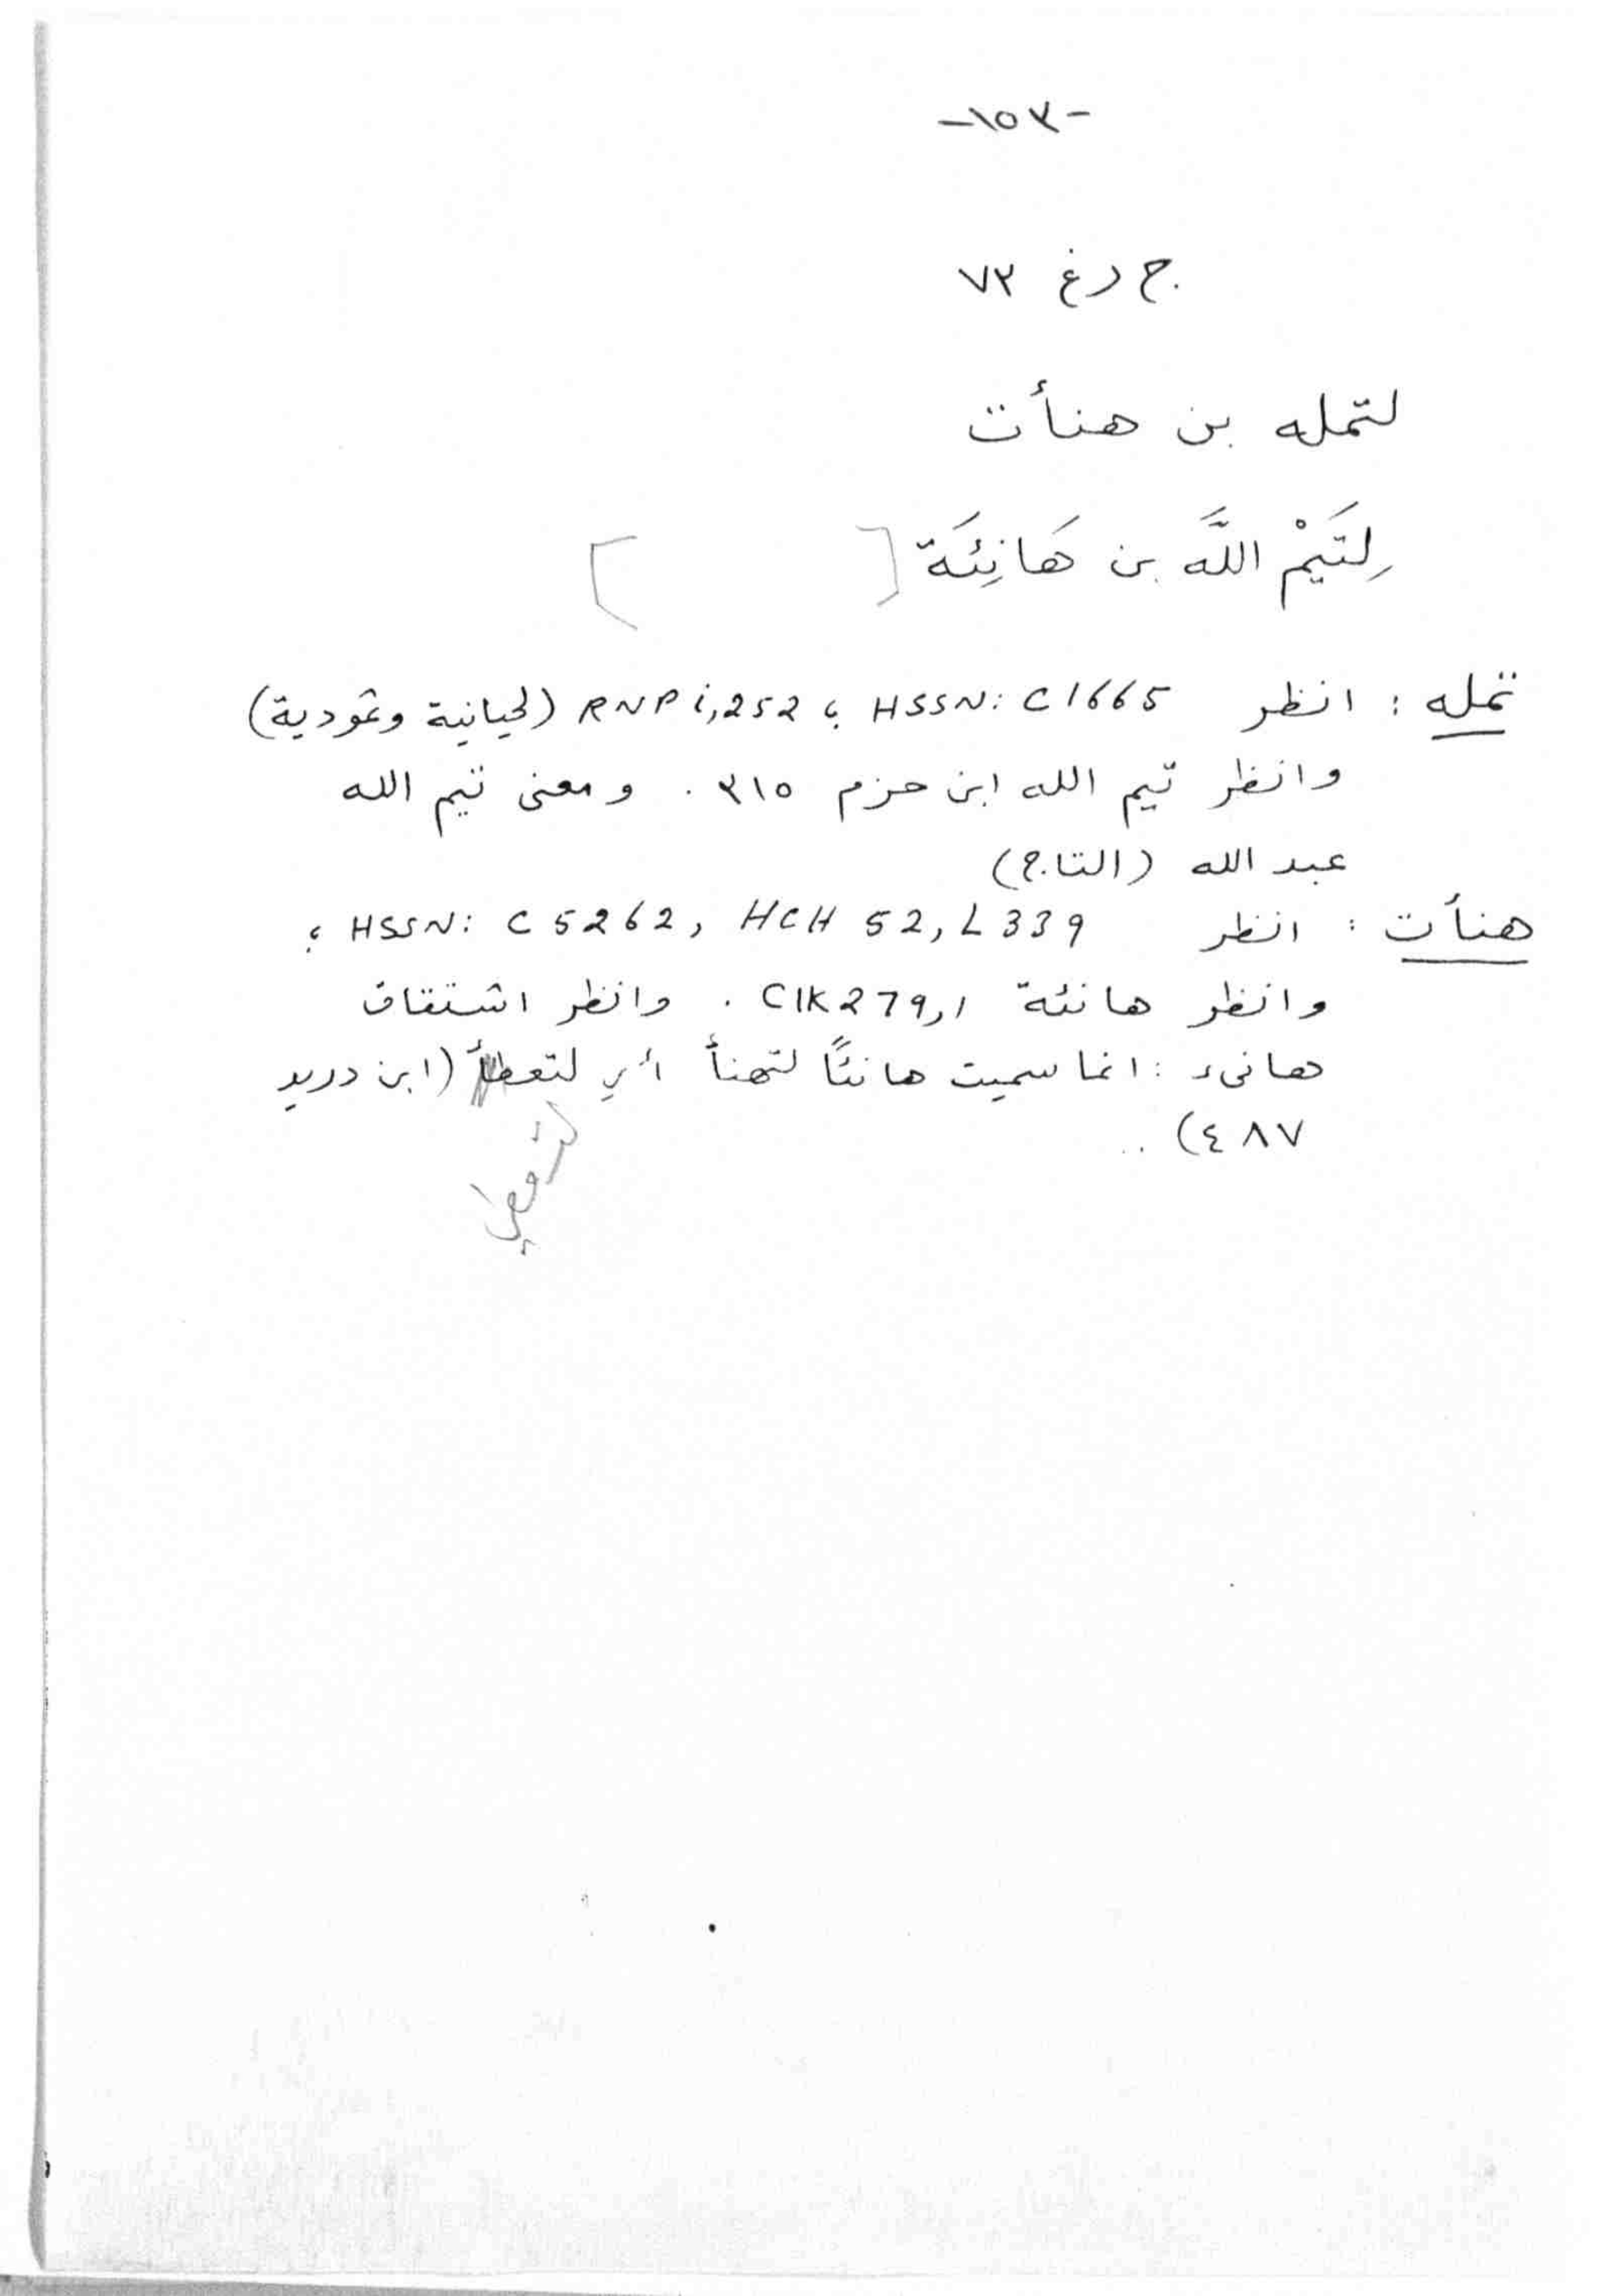 -١٥٣-
ج رغ ٧٣
لتمله بن هنأت
لِتَيْمْ اللَّه بن هَانِئَة [ ]
تمله : انظر HSSN: C1665 ؛ RNP i,252 (لحيانية وثمودية)
وانظر تيم الله ابن حزم ٣١٥ . ومعنى تيم الله
عبد الله (التاج)
هنأت : انظر HSSN: C 5262, HCH 52, L 339 ؛
وانظر هانئة CIK 279,1 . وانظر اشتقاق
هانىء : انما سميت هانئًا لتهنأ أي لتعطأ (ابن دريد
لتعطي
٤٨٧) ..